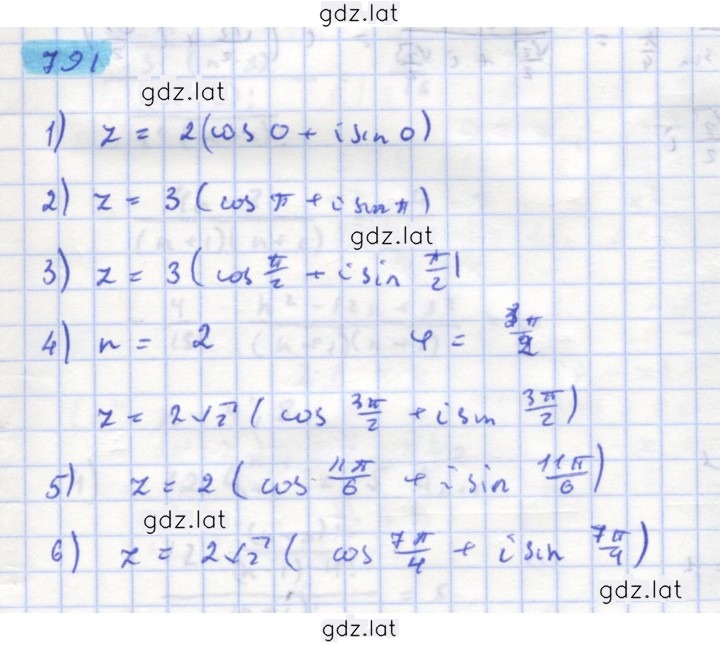 gdz.lat
791
gdz.lat
1) z = 2(cos 0 + i sin 0)
2) z = 3 (cos π + i sin π)
gdz.lat
3) z = 3 ( cos π/2 + i sin π/2)
4) r = 2 φ = 3π/2
z = 2√2 ( cos 3π/2 + i sin 3π/2 )
5) z = 2 ( cos 11π/6 + i sin 11π/6 )
gdz.lat
6) z = 2√2 ( cos 7π/4 + i sin 7π/4 )
gdz.lat
gdz.lat